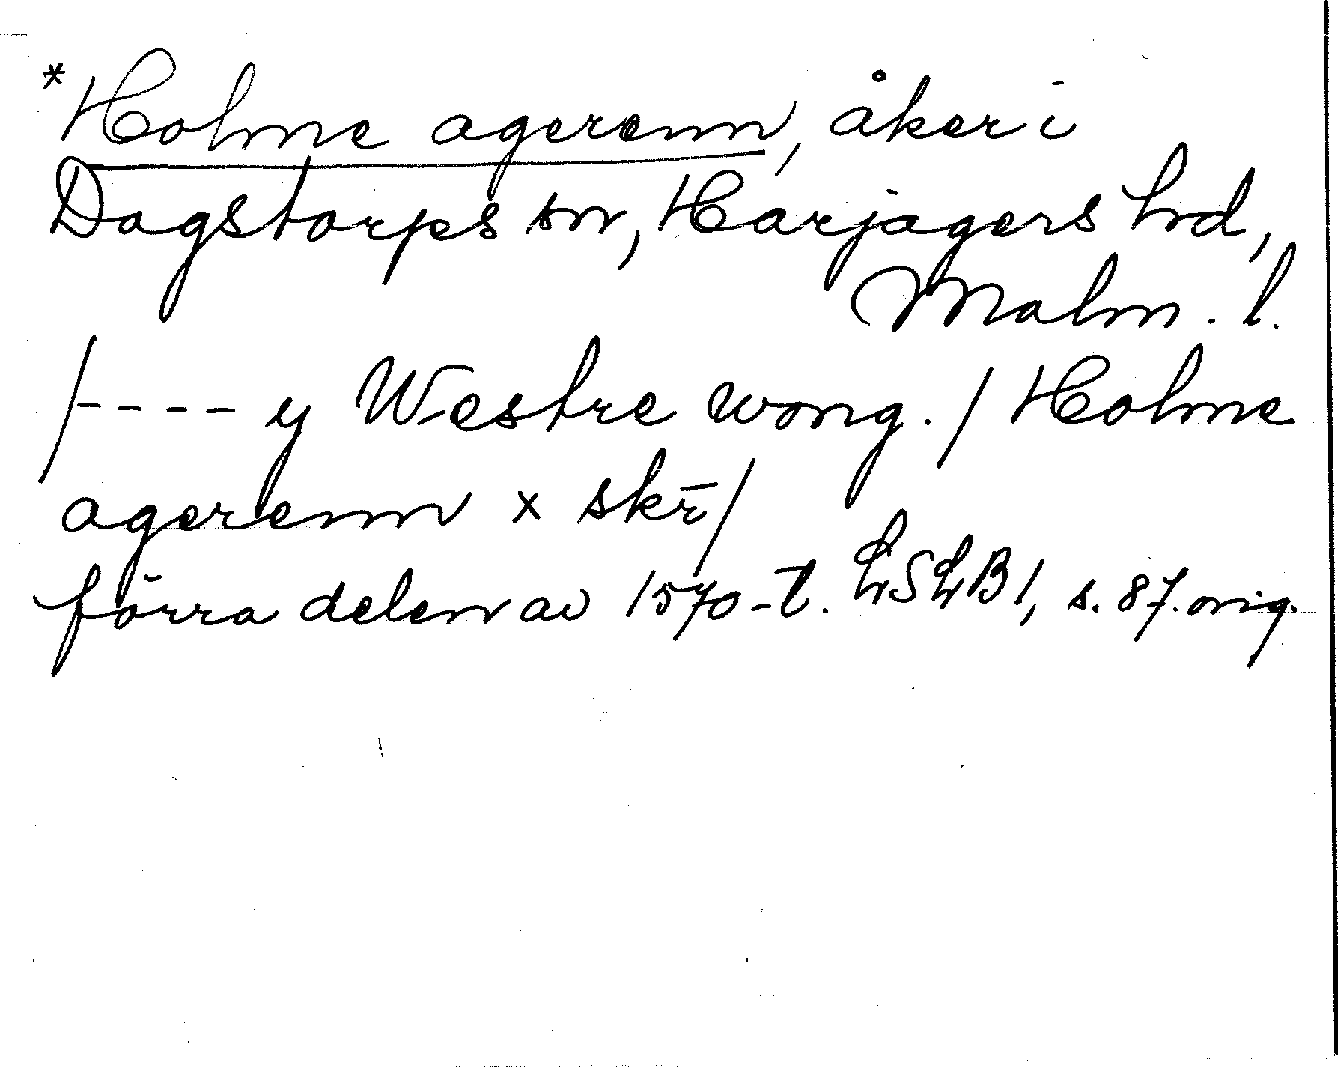 *Holme agerenn, åker i
Dagstorps sn, Harjagers hd,
Malm. l.
/---- y Westre wong. / Holme
agerenn x skr̄/
förra delen av 1570-t. LSLB 1, s. 87. orig.